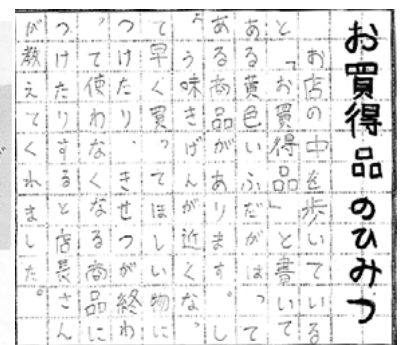 お買得品のひみつ
お店の中を歩いている
と「お買得品」と書いて
ある黄色いふだがはって
ある商品があります。し
ょう味きげんが近くなっ
て早く買ってほしい物に
つけたり、きせつが終わ
って使わなくなる商品に
つけたりすると店長さん
が教えてくれました。